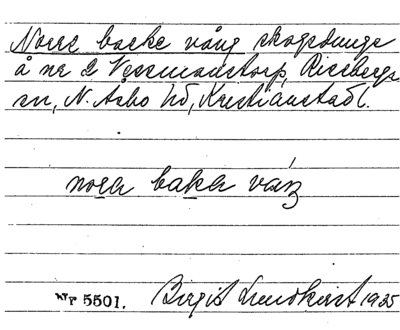 Norre backe vång skogsdunge
å nr 2 Vessmanstorp, Riseberga
sn, N. Asbo hd, Kristianstads l.
nora baka våŋ
Nr 5501. Birgit Lundkvist 1935